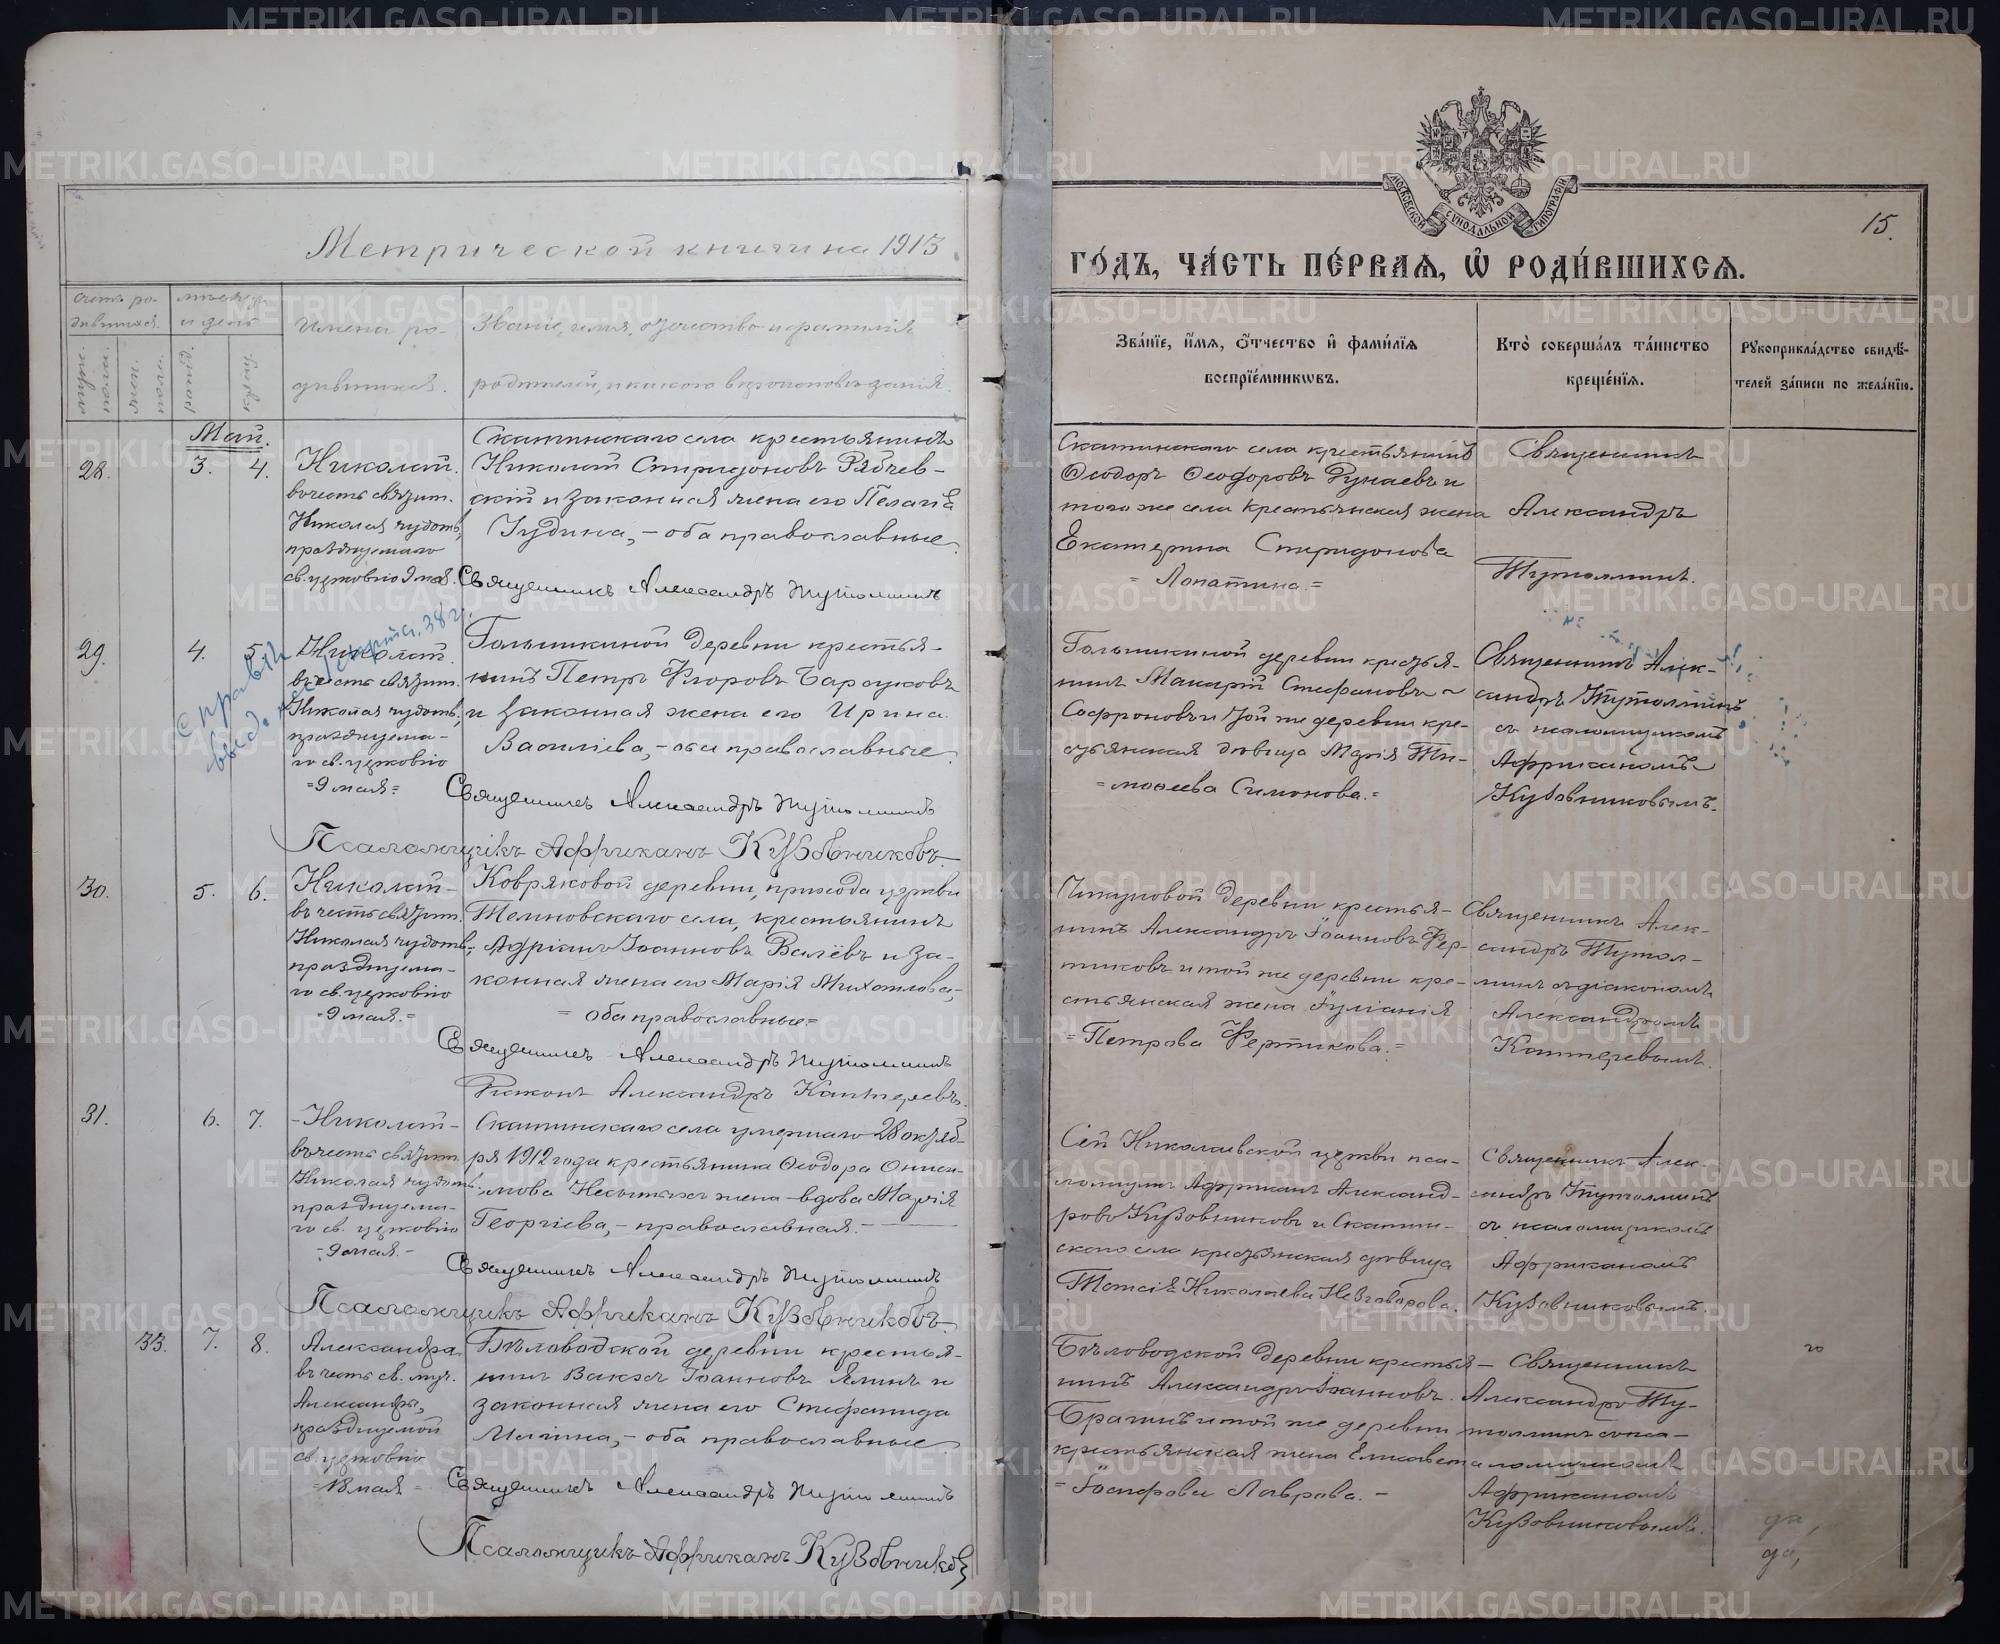 Метрической книги на 1913
Счетъ ро-
дившихся.
Мѣсяцъ
и день
муж.
пола.
жен.
пола.
рожд.
крещ.
Имена ро-
дившихся.
Званіе, имя, отчество и фамилія
родителей, и какого вѣроисповѣданія.
Май.
28. 3. 4.
Николай.
въ честь святит.
Николая чудотв.,
празднуемаго
св. церковію 9 мая.
Скатинскаго села крестьянинъ
Николай Спиридоновъ Рябчев-
скій и законная жена его Пелагія
Іудина, – оба православные.
Священникъ Александръ Тутолминъ
29. 4. 5.
Николай.
въ честь святит.
Николая чудотв.,
празднуема-
го св. церковію
= 9 мая. =
Голышкиной деревни крестья-
нинъ Петръ Егоровъ Барсуковъ
и законная жена его Ирина
Василіева, – оба православные.
Священникъ Александръ Тутолминъ
Псаломщикъ Африканъ Кузовниковъ.
30. 5. 6.
Николай –
въ честь святит.
Николая чудотв.,
празднуема-
го св. церковію
= 9 мая. =
Ковряковой деревни, прихода церкви
Темновскаго села, крестьянинъ
Адріанъ Іоанновъ Валёвъ и за-
конная жена его Марія Михаилова,
= оба православные =
Священникъ Александръ Тутолминъ
Діаконъ Александръ Каптеревъ.
31. 6. 7.
– Николай –
въ честь святит.
Николая чудотв.
празднуема-
го св. церковію
– 9 мая. –
Скатинскаго села умершаго 28 октяб-
ря 1912 года крестьянина Ѳеодора Ониси-
мова Несытыхъ жена – вдова Марія
Георгіева, – православная. –
Священникъ Александръ Тутолминъ
Псаломщикъ Африканъ Кузовниковъ.
33. 7. 8.
Александра
въ честь св. муч.
Александры,
празднуемой
св. церковію
= 18 мая =
Бѣловодской деревни крестья-
нинъ Іоанновъ и
законная жена его Стефанида
– оба православные.
Священникъ Александръ Тутолминъ
Псаломщикъ Африканъ Кузовниковъ
15.
МОСКОВСКОЙ СѴНОДАЛЬНОЙ ТИПОГРАФІИ
ГО́ДЪ, ЧА́СТЬ ПЕ́РВАѦ, Ѽ РОДИ́ВШИХСѦ.
Зва́нїе, и҆́мѧ, ѻ҆́тчество и҆ фами́лїѧ
воспрїе́мникѡвъ.
Кто̀ соверша́лъ та́инство
креще́нїѧ.
Рꙋкоприкла́дство свидѣ́-
телей за́писи по жела́нїю.
Скатинскаго села крестьянинъ
Ѳеодоръ Ѳеодоровъ Рунаевъ и
того же села крестьянская жена
Екатерина Спиридонова
= Лопатина. =
Священникъ
Александръ
Тутолминъ.
Голышкиной деревни крестья-
нинъ Макарій Стефановъ
Софроновъ и той же деревни кре-
стьянская дѣвица Марія Ти-
= моѳеева Симонова. =
Священникъ Алек-
сандръ Тутолминъ
съ псаломщикомъ
Африканомъ
Кузовниковымъ.
Чикуновой деревни крестья-
нинъ Александръ Іоанновъ Фер-
тиковъ и той же деревни кре-
стьянская жена Іуліанія
= Петрова Фертикова. =
Священникъ Алек-
сандръ Тутол-
минъ съ діакономъ
Александромъ
Каптеревымъ.
Сей Николаевской церкви пса-
ломщикъ Африканъ Александ-
ровъ Кузовниковъ и Скатин-
скаго села крестьянская дѣвица
Таисія Николаева Невзорова.
Священникъ Алек-
сандръ Тутолминъ
съ псаломщикомъ
Африканомъ
Кузовниковымъ.
Бѣловодской деревни крестья-
нинъ Александръ Іоанновъ
Брагинъ и той же деревни
крестьянская жена Елисавета
= Іосифова Лаврова. –
Священникъ
Александръ Ту-
толминъ съ пса-
ломщикомъ
Африканомъ
Кузовниковымъ.
METRIKI.GASO-URAL.RU